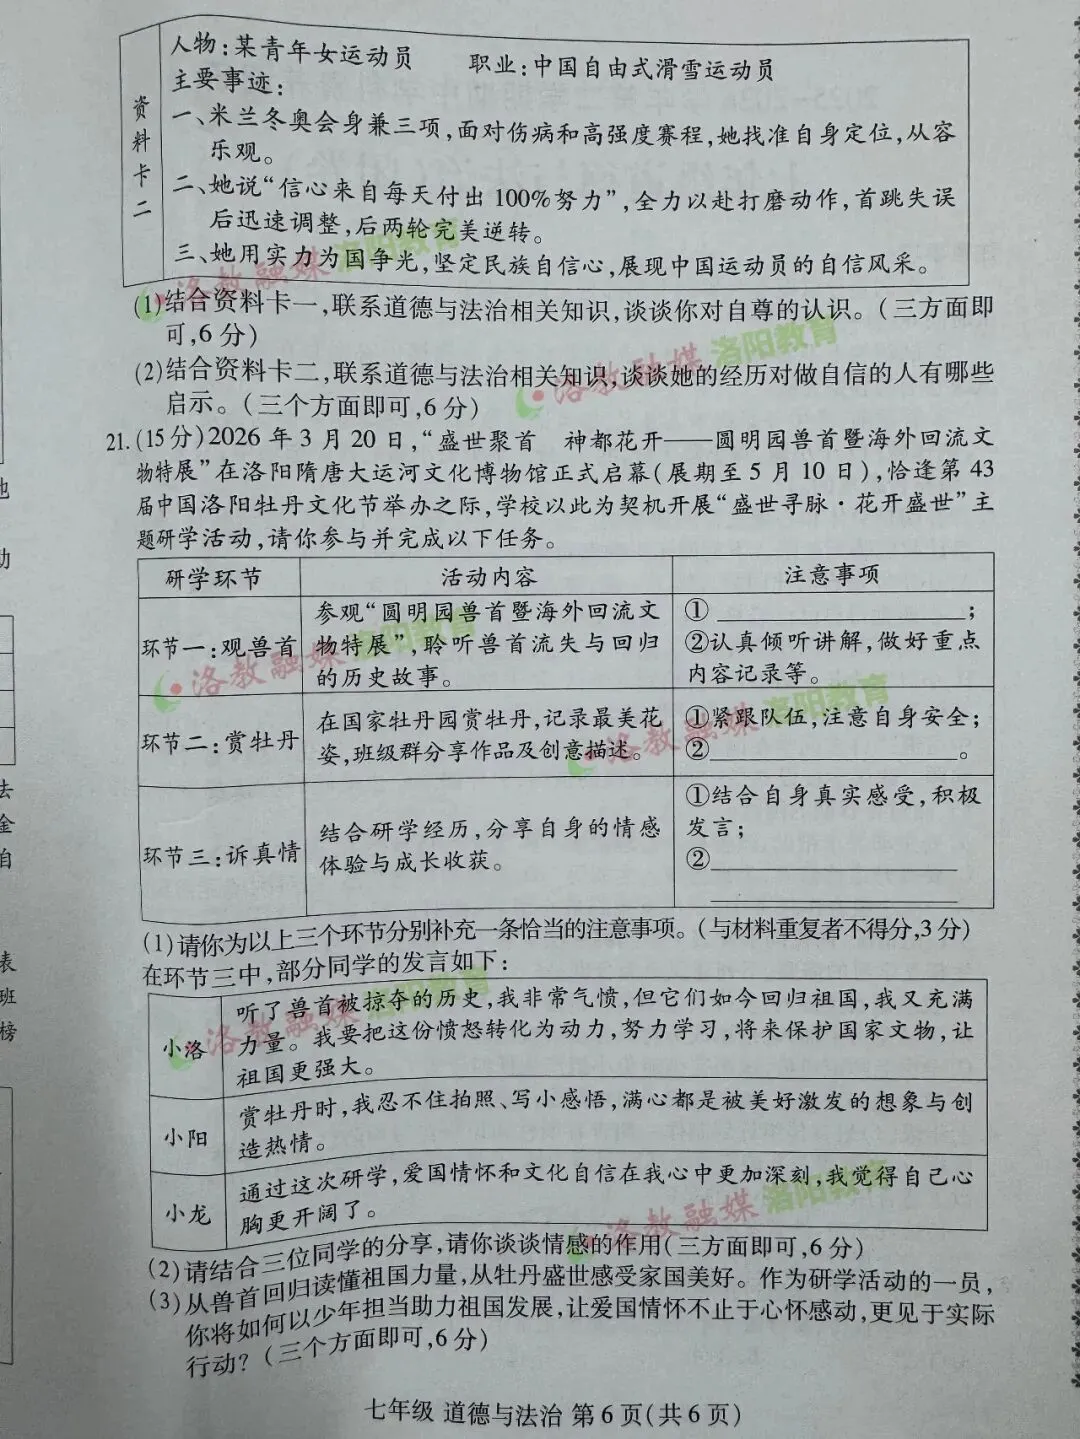 资料卡二
人物:某青年女运动员　　职业:中国自由式滑雪运动员
主要事迹:
一、米兰冬奥会身兼三项,面对伤病和高强度赛程,她找准自身定位,从容
乐观。
二、她说“信心来自每天付出100%努力”,全力以赴打磨动作,首跳失误
后迅速调整,后两轮完美逆转。
三、她用实力为国争光,坚定民族自信心,展现中国运动员的自信风采。
(1)结合资料卡一,联系道德与法治相关知识,谈谈你对自尊的认识。(三方面即
可,6分)
(2)结合资料卡二,联系道德与法治相关知识,谈谈她的经历对做自信的人有哪些
启示。(三个方面即可,6分)
21.(15分)2026年3月20日,“盛世聚首　神都花开——圆明园兽首暨海外回流文
物特展”在洛阳隋唐大运河文化博物馆正式启幕(展期至5月10日),恰逢第43
届中国洛阳牡丹文化节举办之际,学校以此为契机开展“盛世寻脉·花开盛世”主
题研学活动,请你参与并完成以下任务。
研学环节　活动内容　注意事项
环节一:观兽首
参观“圆明园兽首暨海外回流文
物特展”,聆听兽首流失与回归
的历史故事。
①____________;
②认真倾听讲解,做好重点
内容记录等。
环节二:赏牡丹
在国家牡丹园赏牡丹,记录最美花
姿,班级群分享作品及创意描述。
①紧跟队伍,注意自身安全;
②____________。
环节三:诉真情
结合研学经历,分享自身的情感
体验与成长收获。
①结合自身真实感受,积极
发言;
②____________
(1)请你为以上三个环节分别补充一条恰当的注意事项。(与材料重复者不得分,3分)
在环节三中,部分同学的发言如下:
小洛
听了兽首被掠夺的历史,我非常气愤,但它们如今回归祖国,我又充满
力量。我要把这份愤怒转化为动力,努力学习,将来保护国家文物,让
祖国更强大。
小阳
赏牡丹时,我忍不住拍照、写小感悟,满心都是被美好激发的想象与创
造热情。
小龙
通过这次研学,爱国情怀和文化自信在我心中更加深刻,我觉得自己心
胸更开阔了。
(2)请结合三位同学的分享,请你谈谈情感的作用(三方面即可,6分)
(3)从兽首回归读懂祖国力量,从牡丹盛世感受家国美好。作为研学活动的一员,
你将如何以少年担当助力祖国发展,让爱国情怀不止于心怀感动,更见于实际
行动?(三个方面即可,6分)
七年级 道德与法治 第6页(共6页)
洛教融媒 洛阳教育
洛教融媒 洛阳教育
洛教融媒 洛阳教育
洛教融媒 洛阳教育
洛教融媒 洛阳教育
洛教融媒 洛阳教育